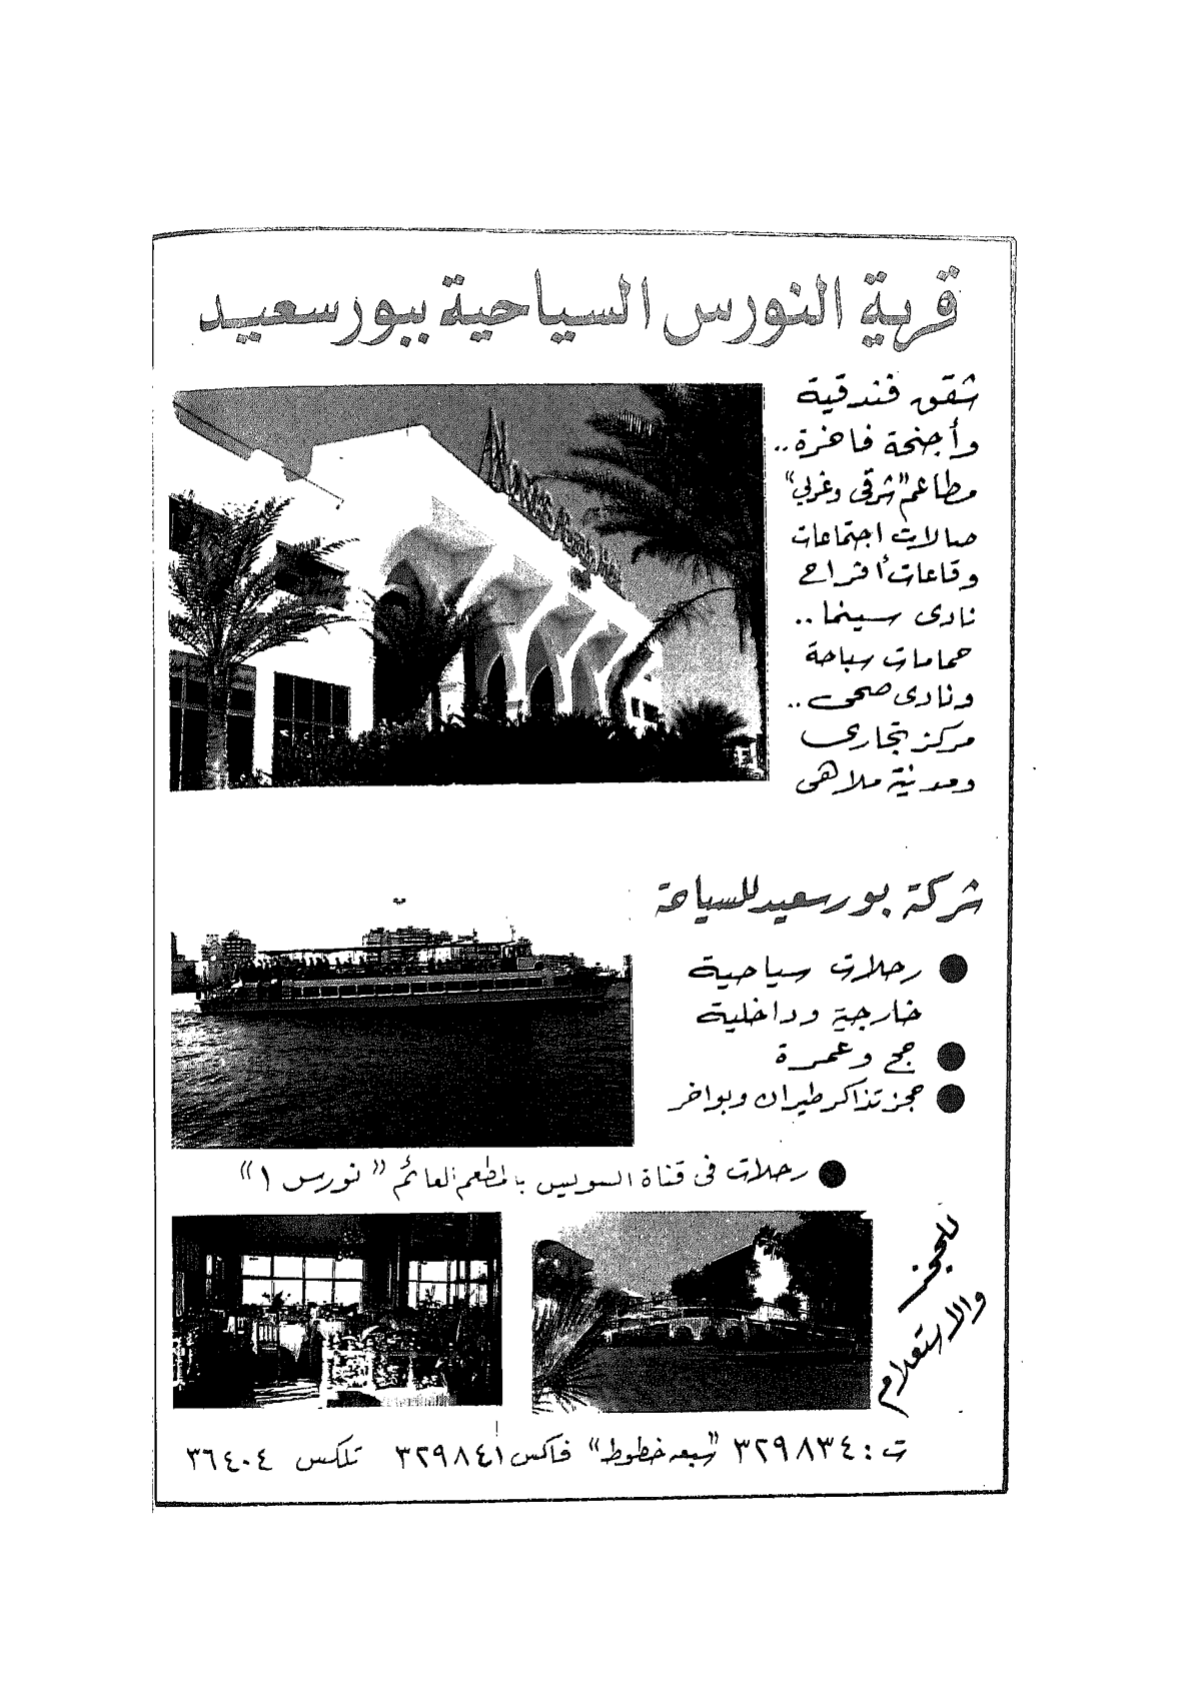 قرية النورس السياحية ببورسعيد
شقق فندقية
وأجنحة فاخرة..
مطاعم "شرقى وغربي"
صالات اجتماعات
وقاعات أفراح
نادى سينما..
حمامات سباحة
ونادى صحى..
مركز تجارى
ومدينة ملاهى
شركة بورسعيد للسياحة
● رحلات سياحية
خارجية وداخلية
● حج وعمرة
● حجز تذاكر طيران وبواخر
● رحلات فى قناة السويس بالمطعم العائم "نورس ١"
للحجز
والاستعلام
ت : ٣٢٩٨٣٤ "سبعه خطوط" فاكس ٣٢٩٨٤١ تلكس ٣٦٤٠٤